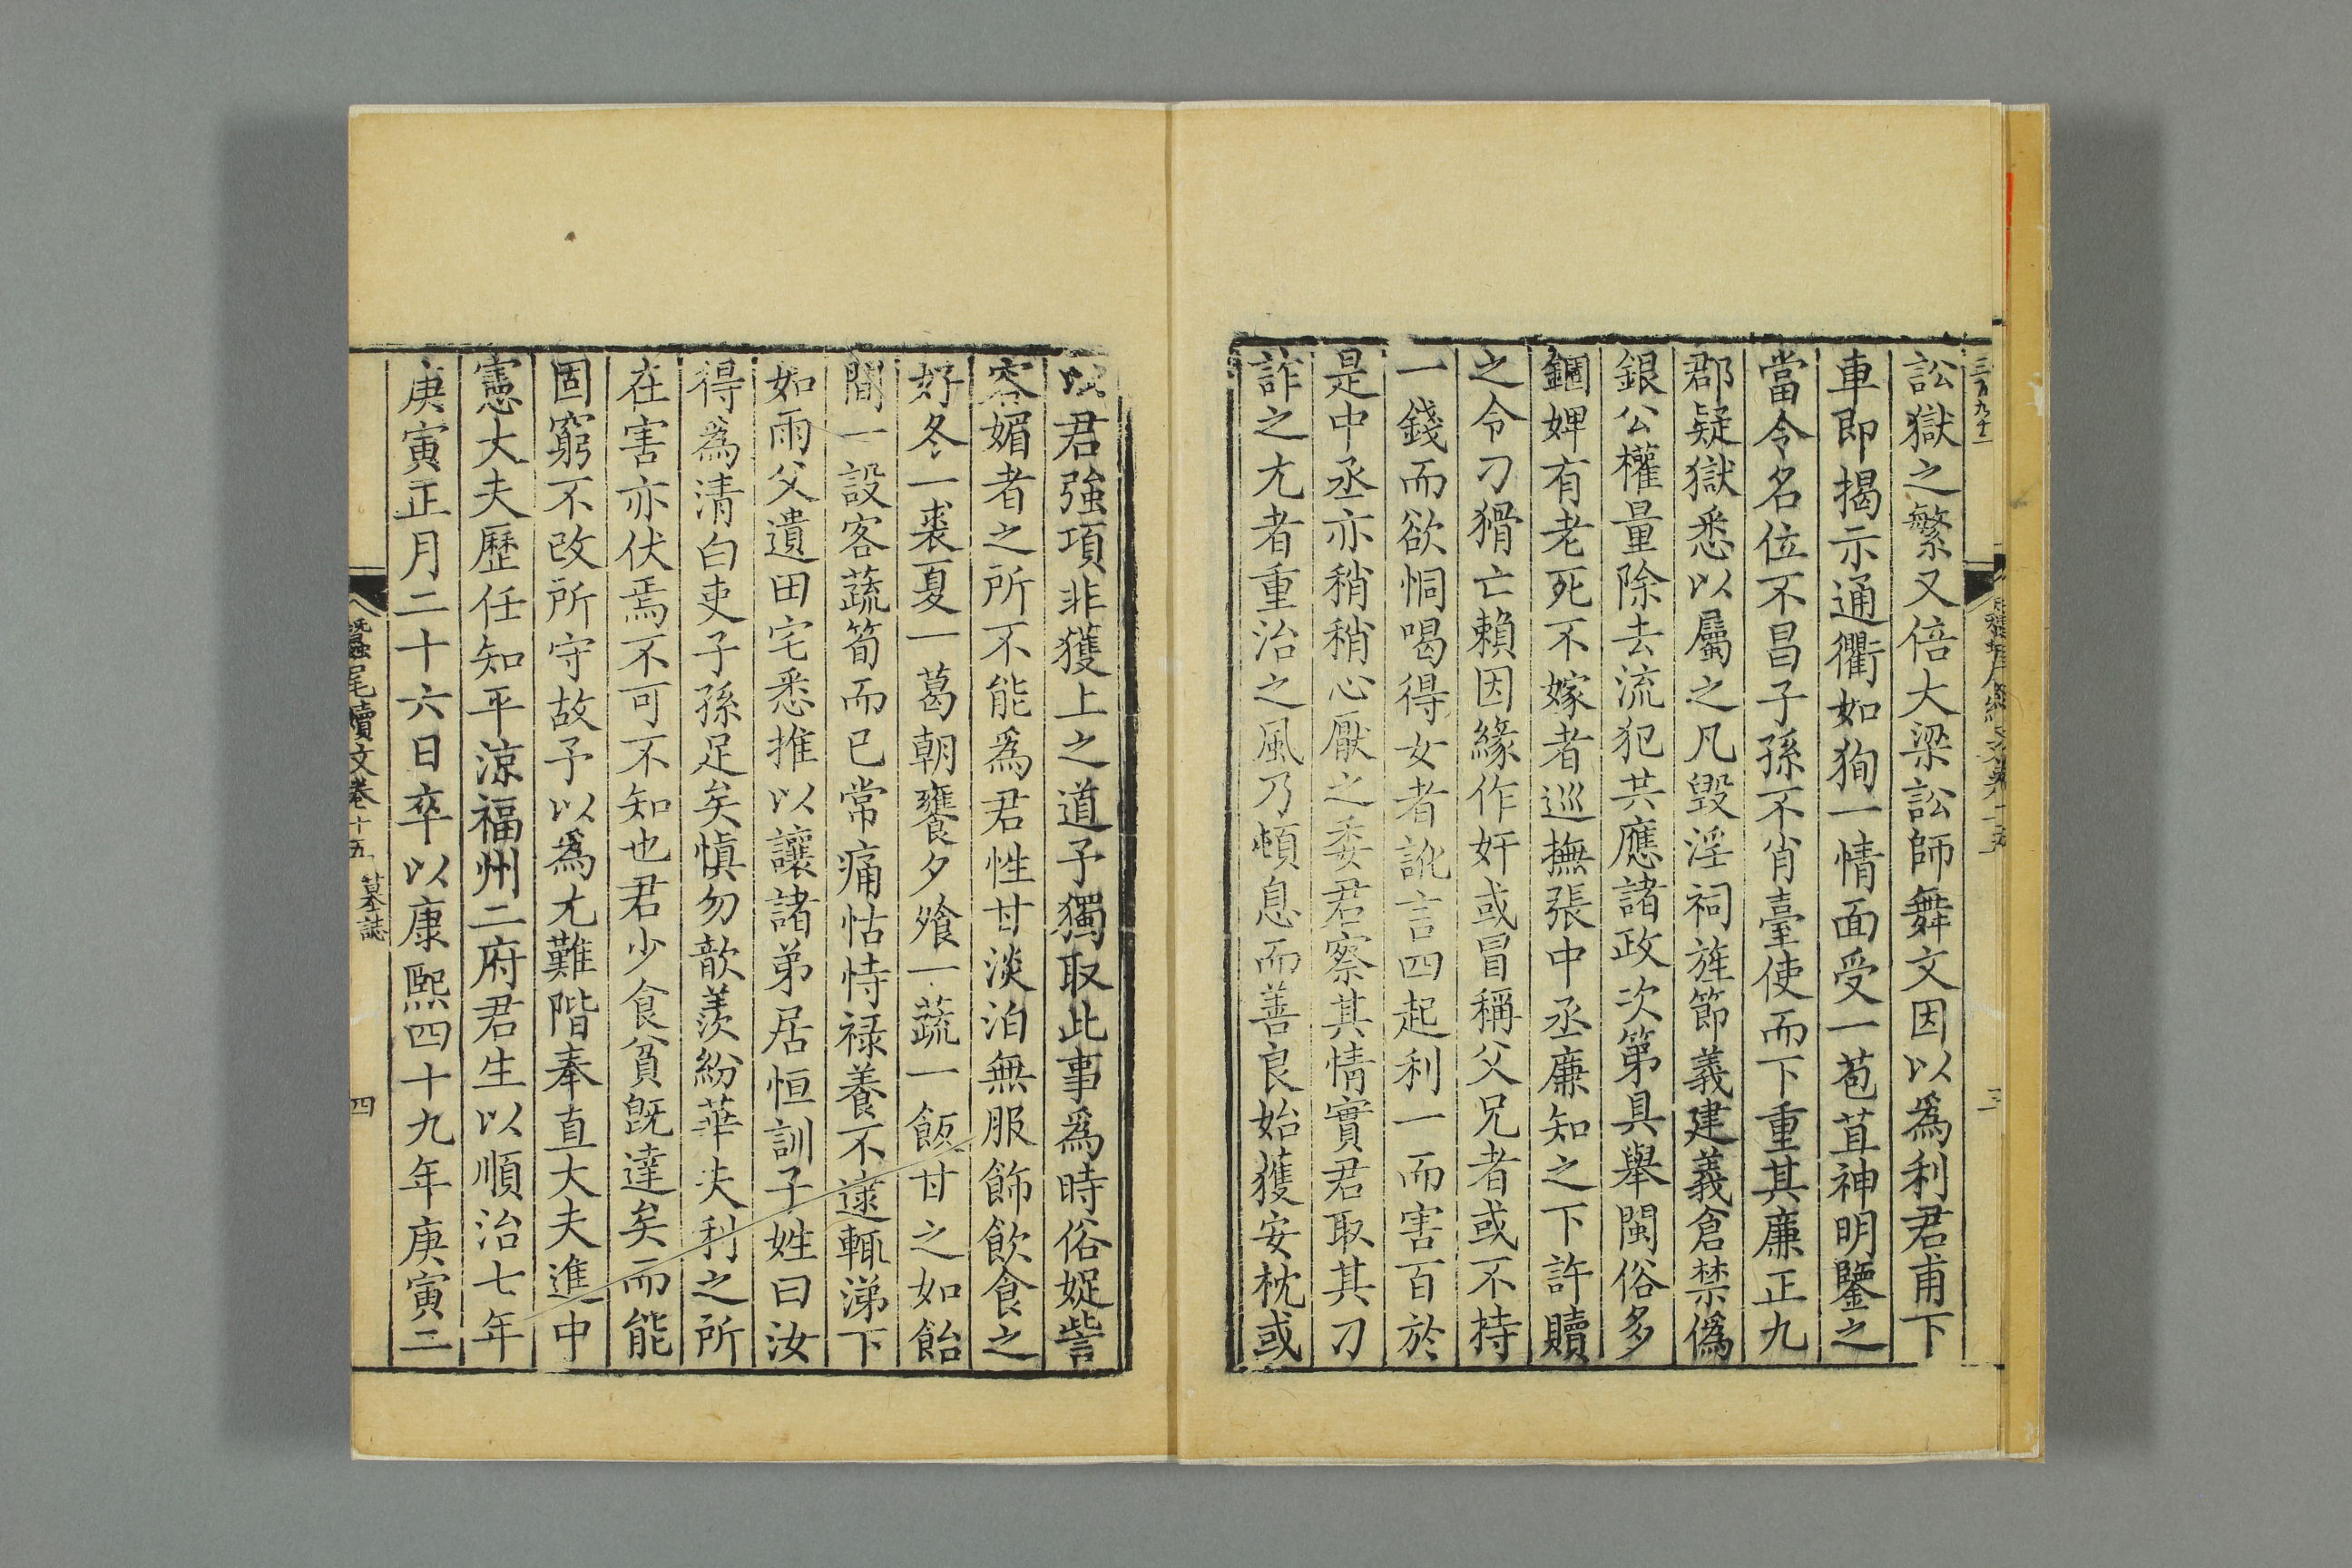 訟獄之繁又倍大梁訟師舞文因以爲利君甫下
車即揭示通衢如狥一情面受一苞苴神明鑒之
當令名位不昌子孫不肖臺使而下重其廉正九
郡疑獄悉以屬之凡毀淫祠旌節義建義倉禁僞
銀公權量除去流犯共應諸政次第具舉閩俗多
錮婢有老死不嫁者巡撫張中丞廉知之下許贖
之令刁猾亡賴因緣作奸或冒稱父兄者或不持
一錢而欲恫喝得女者訛言四起利一而害百於
是中丞亦稍稍心厭之委君察其情實君取其刁
詐之尤者重治之風乃頓息而善良始獲安枕或
以君強項非獲上之道予獨取此事爲時俗娖訾
容媚者之所不能爲君性甘淡泊無服飾飲食之
好冬一裘夏一葛朝饔夕飱一蔬一飯甘之如飴
間一設客蔬筍而已常痛怙恃禄養不逮輒涕下
如雨父遺田宅悉推以讓諸弟居恒訓子姪曰汝
得爲清白吏子孫足矣慎勿歆羡紛華夫利之所
在害亦伏焉不可不知也君少食貧旣達矣而能
固窮不改所守故予以爲尤難階奉直大夫進中
憲大夫歷任知平涼福州二府君生以順治七年
庚寅正月二十六日卒以康熙四十九年庚寅二
蠶尾續文卷十五 墓誌 四